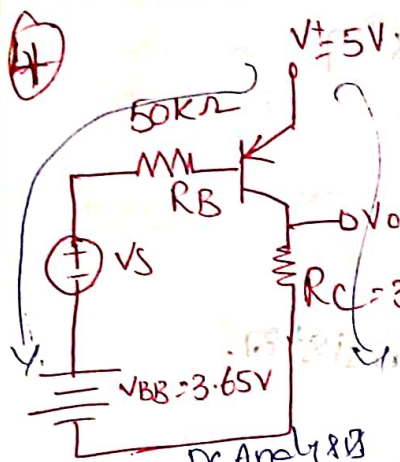 4
V+ = 5V
50KΩ
RB
Vo
VS
RC = 3
VBB = 3.65V
DC Analysis